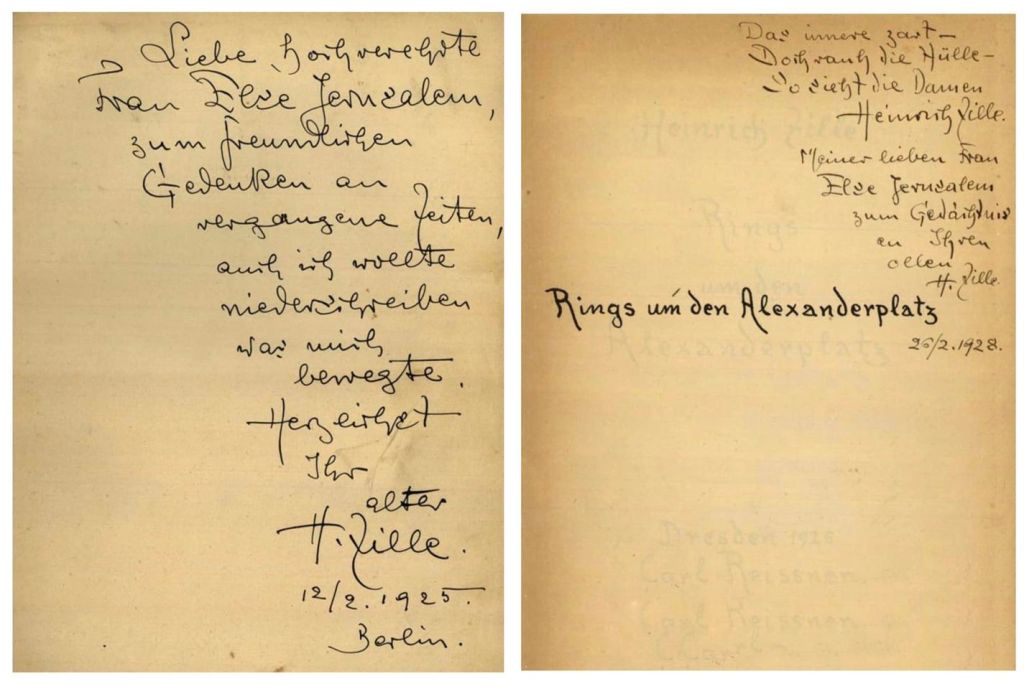 Liebe, hochverehrte
Frau Else Jerusalem,
zum freundlichen
Gedenken an
vergangene Zeiten,
auch ich wollte
niederschreiben
was mich
bewegte.
Herzlichst
Ihr
alter
H. Zille.
12/2. 1925.
Berlin.
Das innere zart –
Doch rauh die Hülle –
So sieht die Damen
Heinrich Zille.
Meiner lieben Frau
Else Jerusalem
zum Gedächtnis
an Ihren
ollen
H. Zille.
Rings um den Alexanderplatz
26/2. 1928.
Heinrich Zille
Rings
um den
Alexanderplatz
Dresden 1926
Carl Reissner
Carl Reissner
Carl